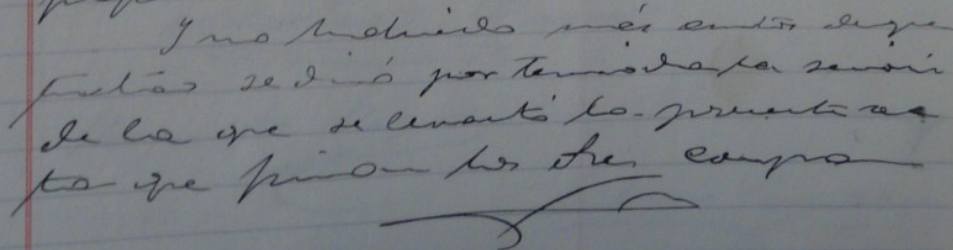 Y no habiendo más asuntos de que
tratar se dió por terminada la sesión
de la que se levantó la presente ac
ta que firman los tres